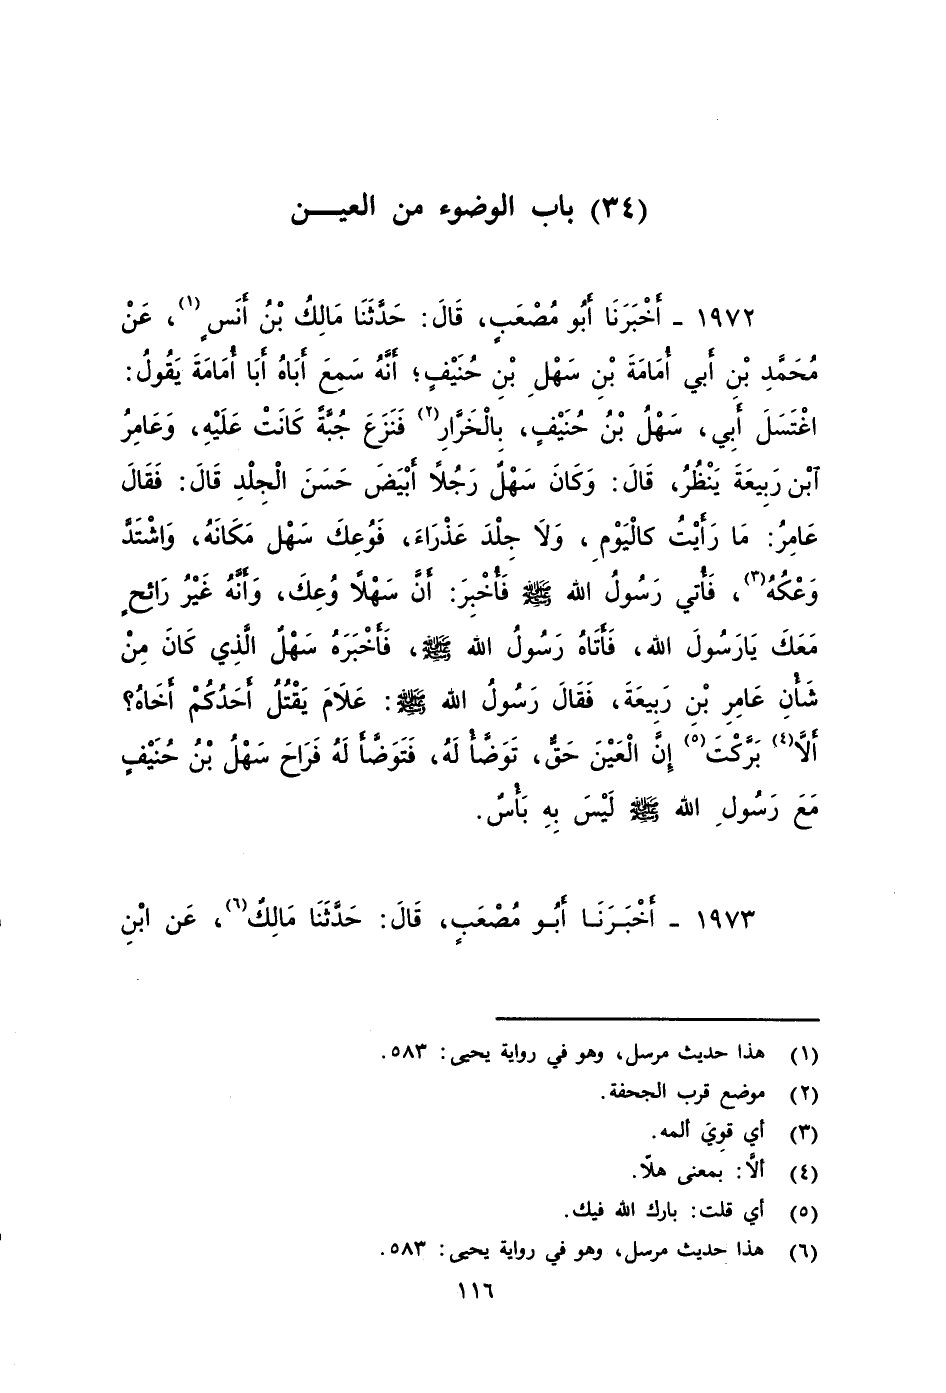 (٣٤) باب الوضوء من العيـــن
١٩٧٢ ـ أَخْبَرَنَا أَبُو مُصْعَبٍ، قَالَ: حَدَّثَنَا مَالِكُ بْنُ أَنَسٍ(١)، عَنْ
مُحَمَّدِ بْنِ أَبي أُمَامَةَ بْنِ سَهْلِ بْنِ حُنَيْفٍ؛ أَنَّهُ سَمِعَ أَبَاهُ أَبَا أُمَامَةَ يَقُولُ:
اغْتَسَلَ أَبِي، سَهْلُ بْنُ حُنَيْفٍ، بِالْخَرَّارِ(٢) فَنَزَعَ جُبَّةً كَانَتْ عَلَيْهِ، وَعَامِرُ
آبْن رَبِيعَةَ يَنْظُرُ، قَالَ: وَكَانَ سَهْلٌ رَجُلًا أَبْيَضَ حَسَنَ الْجِلْدِ قَالَ: فَقَالَ
عَامِرُ: مَا رَأَيْتُ كالْيَوْمِ، وَلَا جِلْدَ عَذْرَاءَ، فَوُعِكَ سَهْل مَكَانَهُ، وَاشْتَدَّ
وَعْكُهُ(٣)، فَأُتي رَسُولُ الله ﷺ فَأُخْبِرَ: أَنَّ سَهْلًا وُعِكَ، وَأَنَّهُ غَيْرُ رَائحٍ
مَعَكَ يَارَسُولَ الله، فَأَتَاهُ رَسُولُ الله ﷺ، فَأَخْبَرَهُ سَهْلٌ الَّذِي كَانَ مِنْ
شَأْنِ عَامِرِ بْنِ رَبِيعَةَ، فَقَالَ رَسُولُ الله ﷺ: عَلَامَ يَقْتُلُ أَحَدُكُمْ أَخَاهُ؟
أَلَّا(٤) بَرَّكْتَ(٥) إِنَّ الْعَيْنَ حَقٌّ، تَوَضَّأْ لَهُ، فَتَوَضَّأَ لَهُ فَرَاحَ سَهْلُ بْنُ حُنَيْفٍ
مَعَ رَسُولِ الله ﷺ لَيْسَ بِهِ بَأْسٌ.
١٩٧٣ ـ أَخْبَـرَنَـا أَبُـو مُصْعَبٍ، قَالَ: حَدَّثَنَا مَالِكٌ(٦)، عَن ابْنِ
(١) هذا حديث مرسل، وهو في رواية يحيى: ٥٨٣.
(٢) موضع قرب الجحفة.
(٣) أي قوِيَ ألمه.
(٤) ألَّا: بمعنى هلّا.
(٥) أي قلت: بارك الله فيك.
(٦) هذا حديث مرسل، وهو في رواية يحيى: ٥٨٣.
١١٦